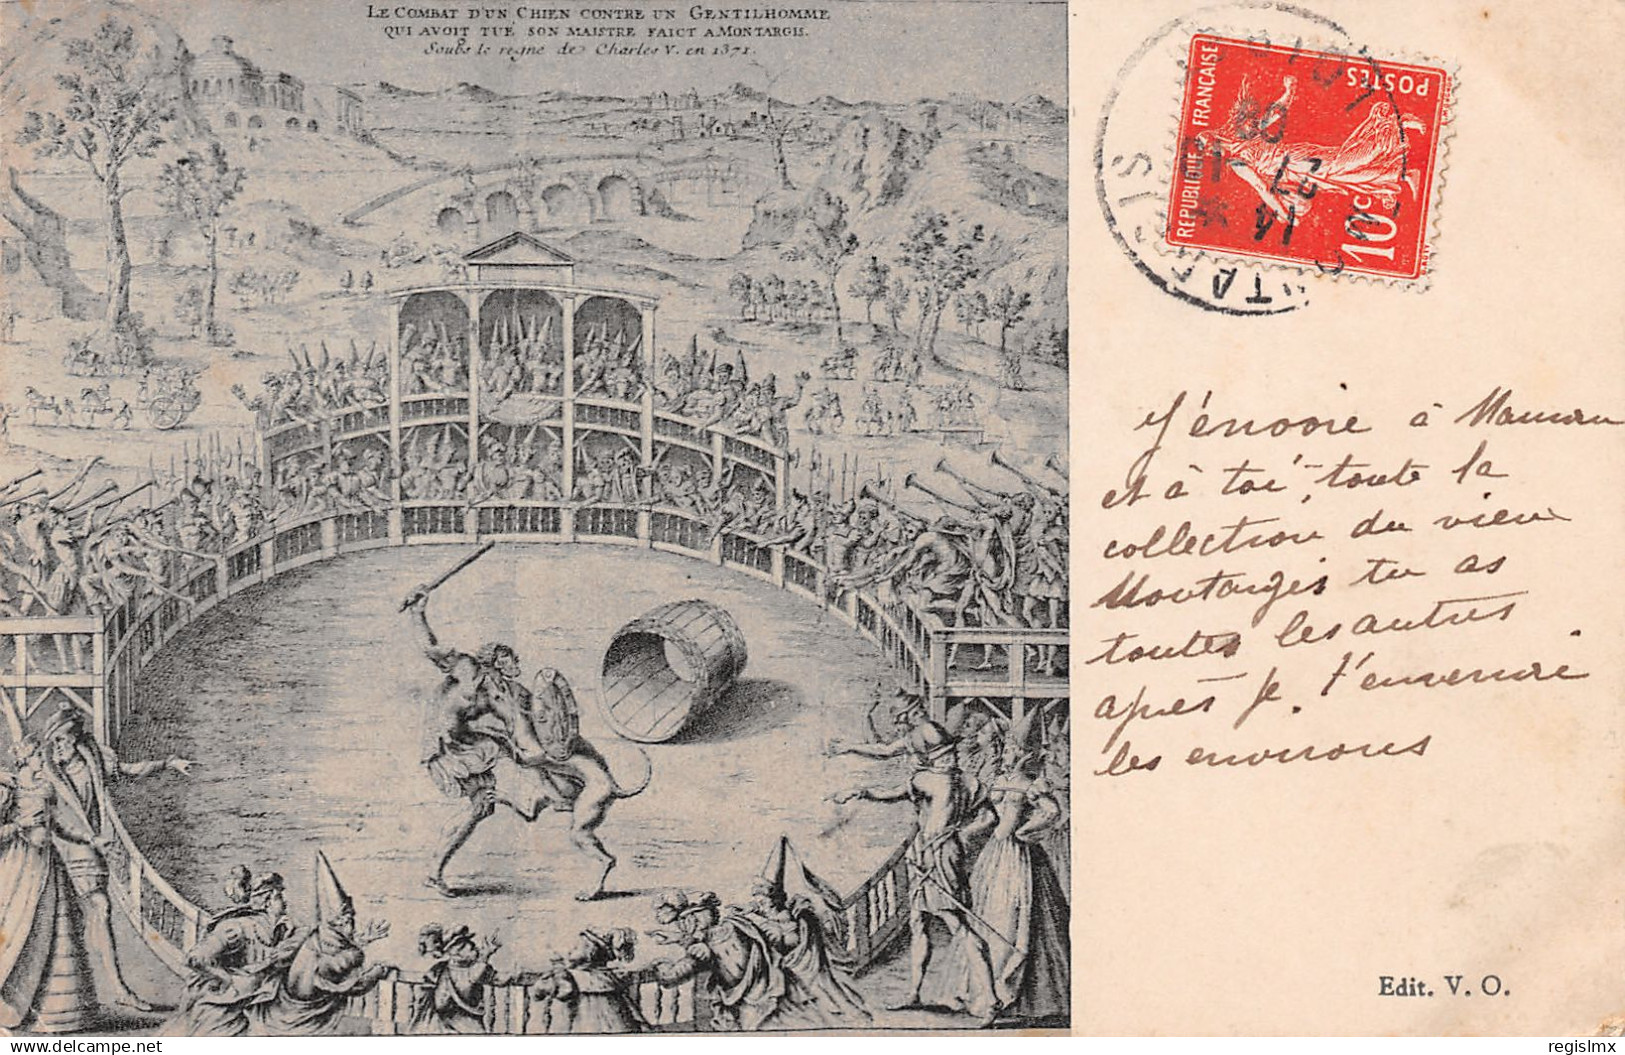 LE COMBAT D'UN CHIEN CONTRE UN GENTILHOMME
QUI AVOIT TUÉ SON MAISTRE FAICT A MONTARGIS.
Soubs le regne de Charles V. en 1371.
REPUBLIQUE FRANÇAISE
POSTES
10 c
14
27
09
J'envoie à Maman
et à toi, toute la
collection du vieux
Montargis tu as
toutes les autres
après je t'enverrai
les environs
Edit. V. O.
www.delcampe.net
regislmx